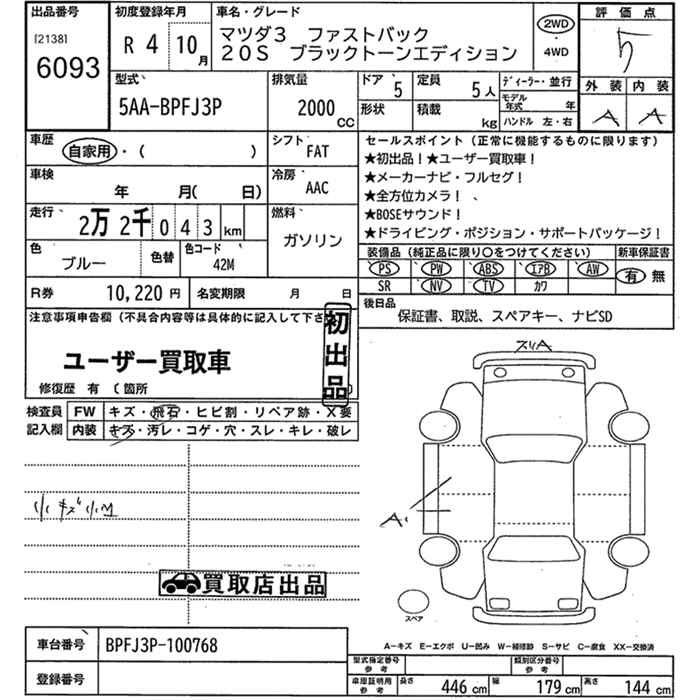 出品番号 初度登録年月 車名・グレード 2WD 評価点
[2138] R 4 10月 マツダ3 ファストバック ・ 5
6093 20S ブラックトーンエディション 4WD
型式 排気量 ドア 定員 ディーラー・並行 外装 内装
5AA-BPFJ3P 2000 5 5人 モデル年式 年 A A
CC 形状 積載 kg ハンドル 左・右
車歴 シフト セールスポイント (正常に機能するものに限ります)
自家用・( ) FAT ★初出品!★ユーザー買取車!
車検 冷房 ★メーカーナビ・フルセグ!
年 月(日) AAC ★全方位カメラ! 、
走行 燃料 ★BOSEサウンド!
2万2千043km ガソリン ★ドライビング・ポジション・サポートパッケージ!
色 色替 色コード 装備品 (純正品に限り○をつけてください) 新車保証書
ブルー 42M PS PW ABS エアB AW 有 無
SR NV TV カワ
R券 10,220円 名変期限 月 日 後日品
注意事項申告欄 (不具合内容等は具体的に記入して下さ 保証書、取説、スペアキー、ナビSD
初出品
ユーザー買取車
修復歴 有 (箇所
スリA
検査員 FW キズ・飛石・ヒビ割・リペア跡・X要
記入欄 内装 キズ・汚レ・コゲ・穴・スレ・キレ・破レ
小キズ小凹
A1
買取店出品
スペア
車台番号 BPFJ3P-100768
A-キズ E-エクボ U-凹み W-補修跡 S-サビ C-腐食 XX-交換済
登録番号 型式指定番号 参考 類別区分番号 参考
車庫証明用 参考 長さ 446cm 幅 179cm 高さ 144cm